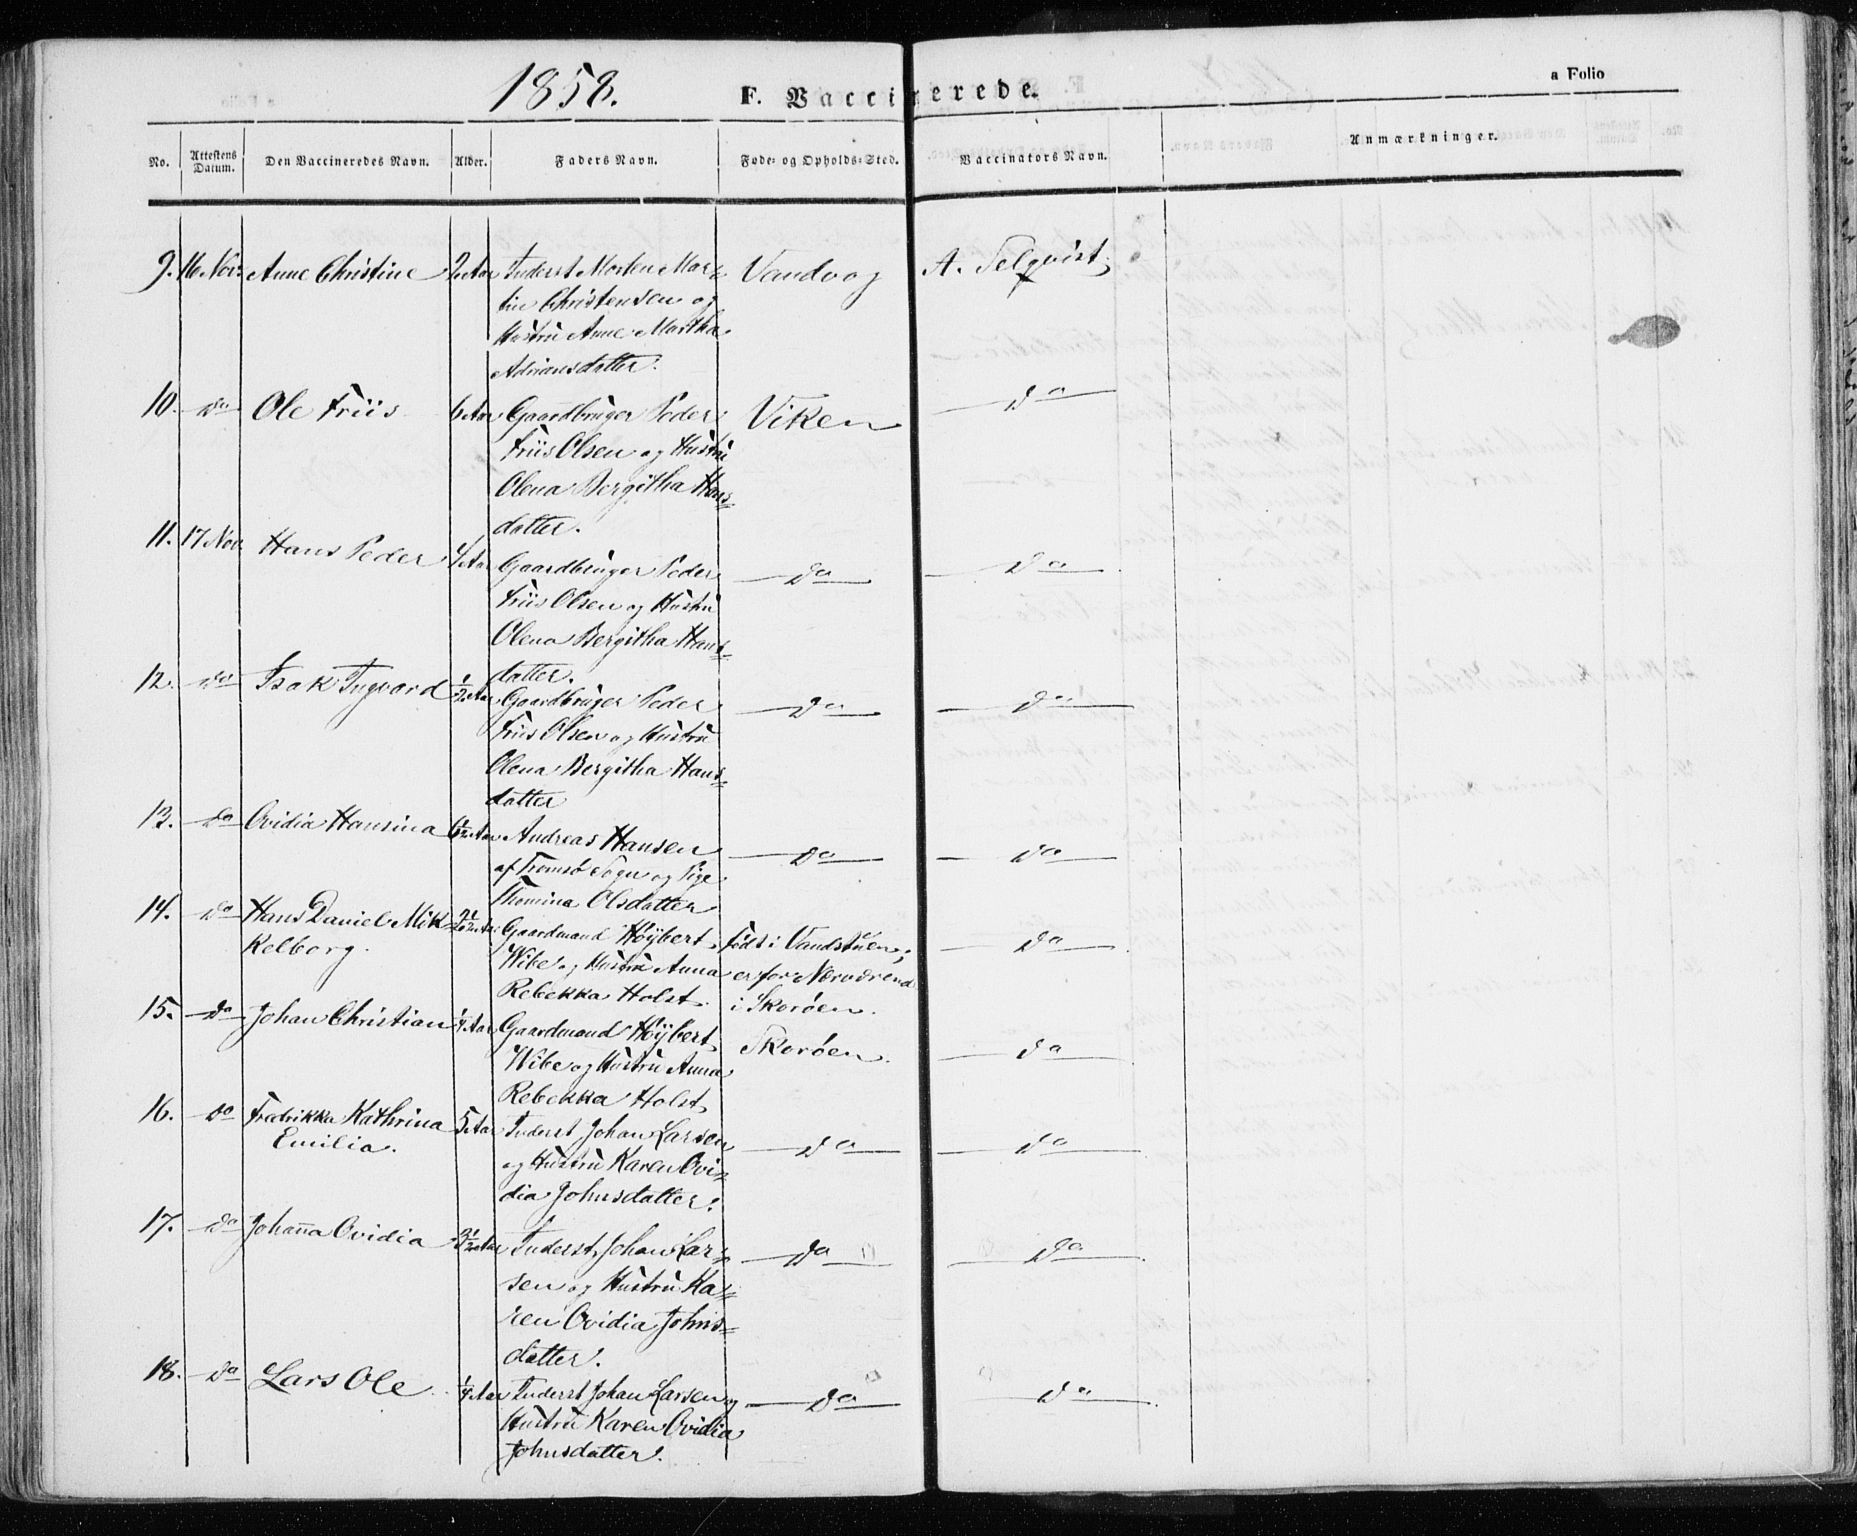 1858.
F. Vaccinerede.
a Folio
No. Attestens Datum. Den Vaccineredes Navn. Alder. Faders Navn. Føde- og Opholds-Sted. Vaccinators Navn. Anmærkninger.
9. 16 Nov. Anne Christine 2 Aar Inderst Morten Mar-
tin Christensen og
Hustru Anne Martha
Adriansdatter.
Vandvog
10. do Ole Friis 6 Aar Gaardbruger Peder
Friis Olsen og Hustru
Olena Bergitha Hans-
datter.
Viken do
11. 17 Nov. Hans Peder 4 Aar Gaardbruger Peder
Friis Olsen og Hustru
Olena Bergitha Hans-
datter.
do do
12. do Isak Ingvard 1/2 Aar Gaardbruger Peder
Friis Olsen og Hustru
Olena Bergitha Hans-
datter
do do
13. do Ovidia Hansina 6 1/2 Aar Andreas Hansen
af Tromsø Sogn og Pige
Thomina Olsdatter
do do
14. do Hans Daniel Mik-
kelborg.
2 1/2 Aar Gaardmand Höÿbert
Wibe og Hustru Anna
Rebekka Holst.
født i Vandstuen;
er for Nærværend
i Skorøen.
do
15. do Johan Christian 1/4 Aar Gaardmand Höÿbert
Wibe og Hustru Anna
Rebekka Holst
Skorøen. do
16. do Fredrikka Kathrina
Emilia.
5 Aar Inderst Johan Larsen
og Hustru Karen Ovi-
dia Johnsdatter.
do do
17. do Johanna Ovidia 3 1/2 Aar Inderst Johan Lar-
sen og Hustru Ka-
ren Ovidia Johns-
datter.
do do
18. do Lars Ole 1/4 Aar Inderst Johan Larsen og
Hustru Karen Ovidia
Johnsdatter.
do do